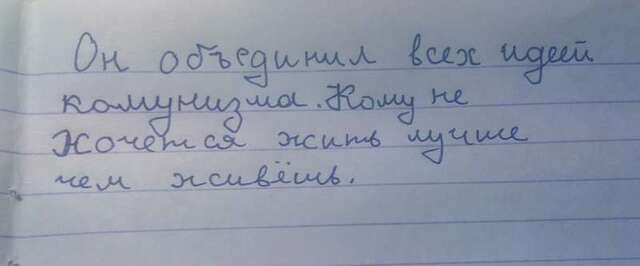 Он объединил всех идеей
комунизма. Кому не
хочется жить лучше
чем живёшь.